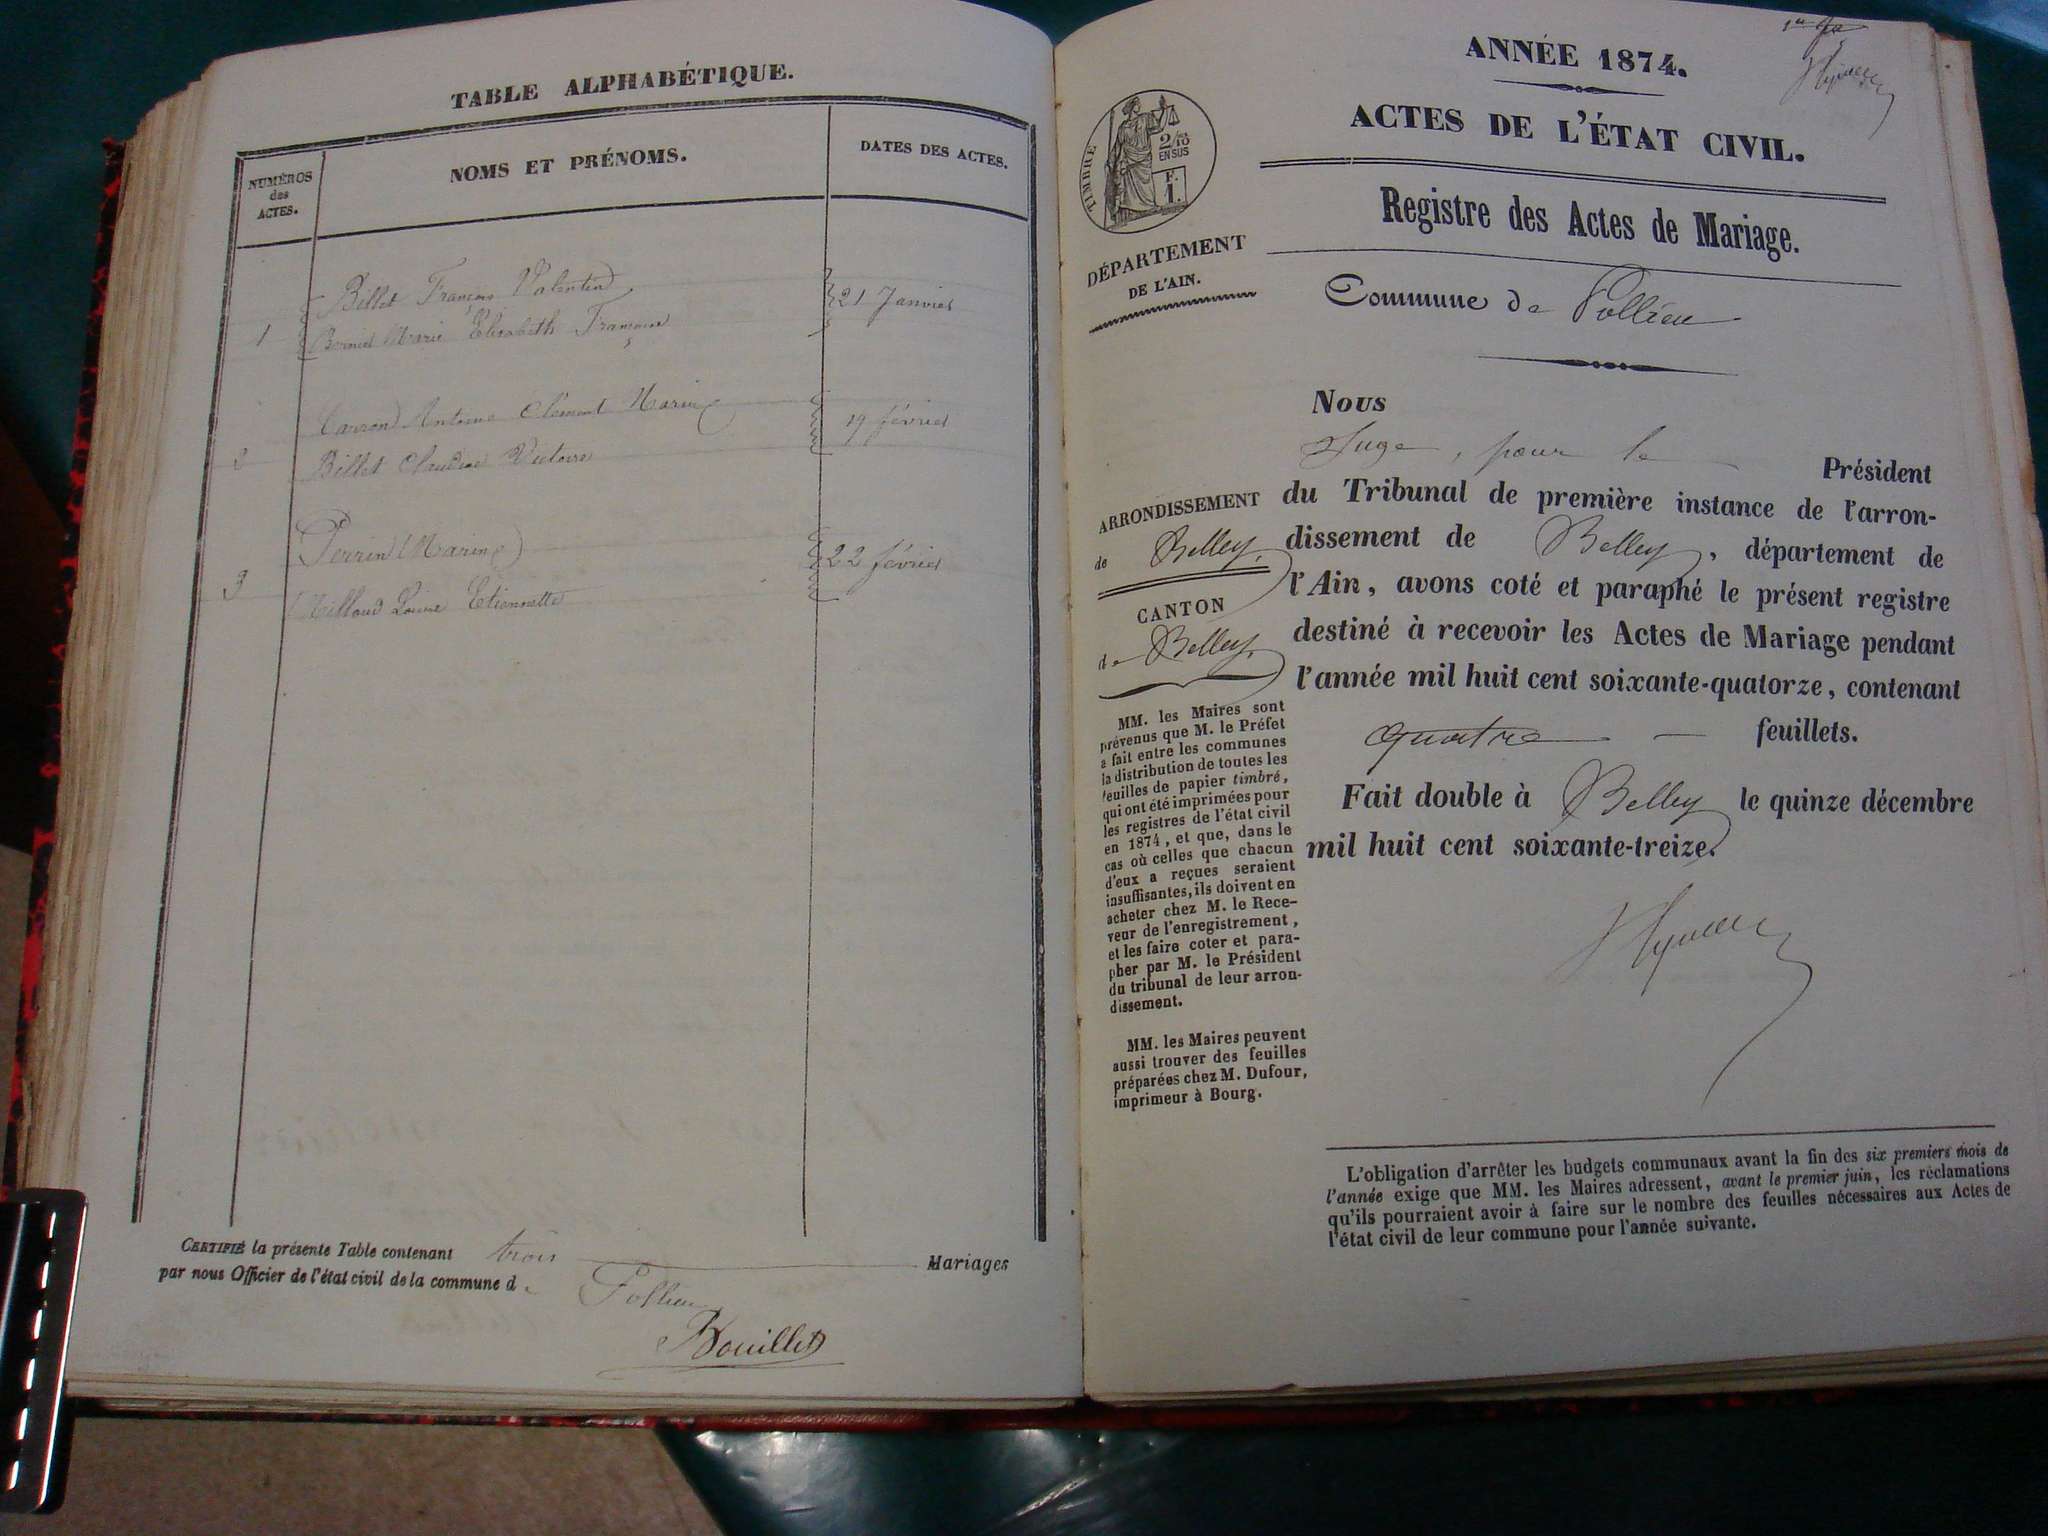 TABLE ALPHABÉTIQUE.
NUMÉROS
des
ACTES.
NOMS ET PRÉNOMS.
DATES DES ACTES.
Billet François Valentin
1
Marie Elisabeth Françoise
21 Janvier
Carron Antoine Clément Marin
2
Billet Claudine Victoire
19 février
Perrin (Marin)
3
Millaud Louise Etiennette
22 février
CERTIFIÉ la présente Table contenant trois Mariages
par nous Officier de l'état civil de la commune de Pollieu
Bouillet
ANNÉE 1874.
ACTES DE L'ÉTAT CIVIL.
TIMBRE
2/10
EN SUS
F.
1.
Registre des Actes de Mariage.
DÉPARTEMENT
DE L'AIN.
Commune de Pollieu
Nous
Juge, pour le Président
du Tribunal de première instance de l'arron-
dissement de Belley, département de
l'Ain, avons coté et paraphé le présent registre
destiné à recevoir les Actes de Mariage pendant
l'année mil huit cent soixante-quatorze, contenant
quatre feuillets.
Fait double à Belley le quinze décembre
mil huit cent soixante-treize.
ARRONDISSEMENT
de Belley.
CANTON
de Belley.
MM. les Maires sont
prévenus que M. le Préfet
a fait entre les communes
la distribution de toutes les
feuilles de papier timbré,
qui ont été imprimées pour
les registres de l'état civil
en 1874, et que, dans le
cas où celles que chacun
d'eux a reçues seraient
insuffisantes, ils doivent en
acheter chez M. le Rece-
veur de l'enregistrement,
et les faire coter et para-
pher par M. le Président
du tribunal de leur arron-
dissement.
MM. les Maires peuvent
aussi trouver des feuilles
préparées chez M. Dufour,
imprimeur à Bourg.
L'obligation d'arrêter les budgets communaux avant la fin des six premiers mois de
l'année exige que MM. les Maires adressent, avant le premier juin, les réclamations
qu'ils pourraient avoir à faire sur le nombre des feuilles nécessaires aux Actes de
l'état civil de leur commune pour l'année suivante.